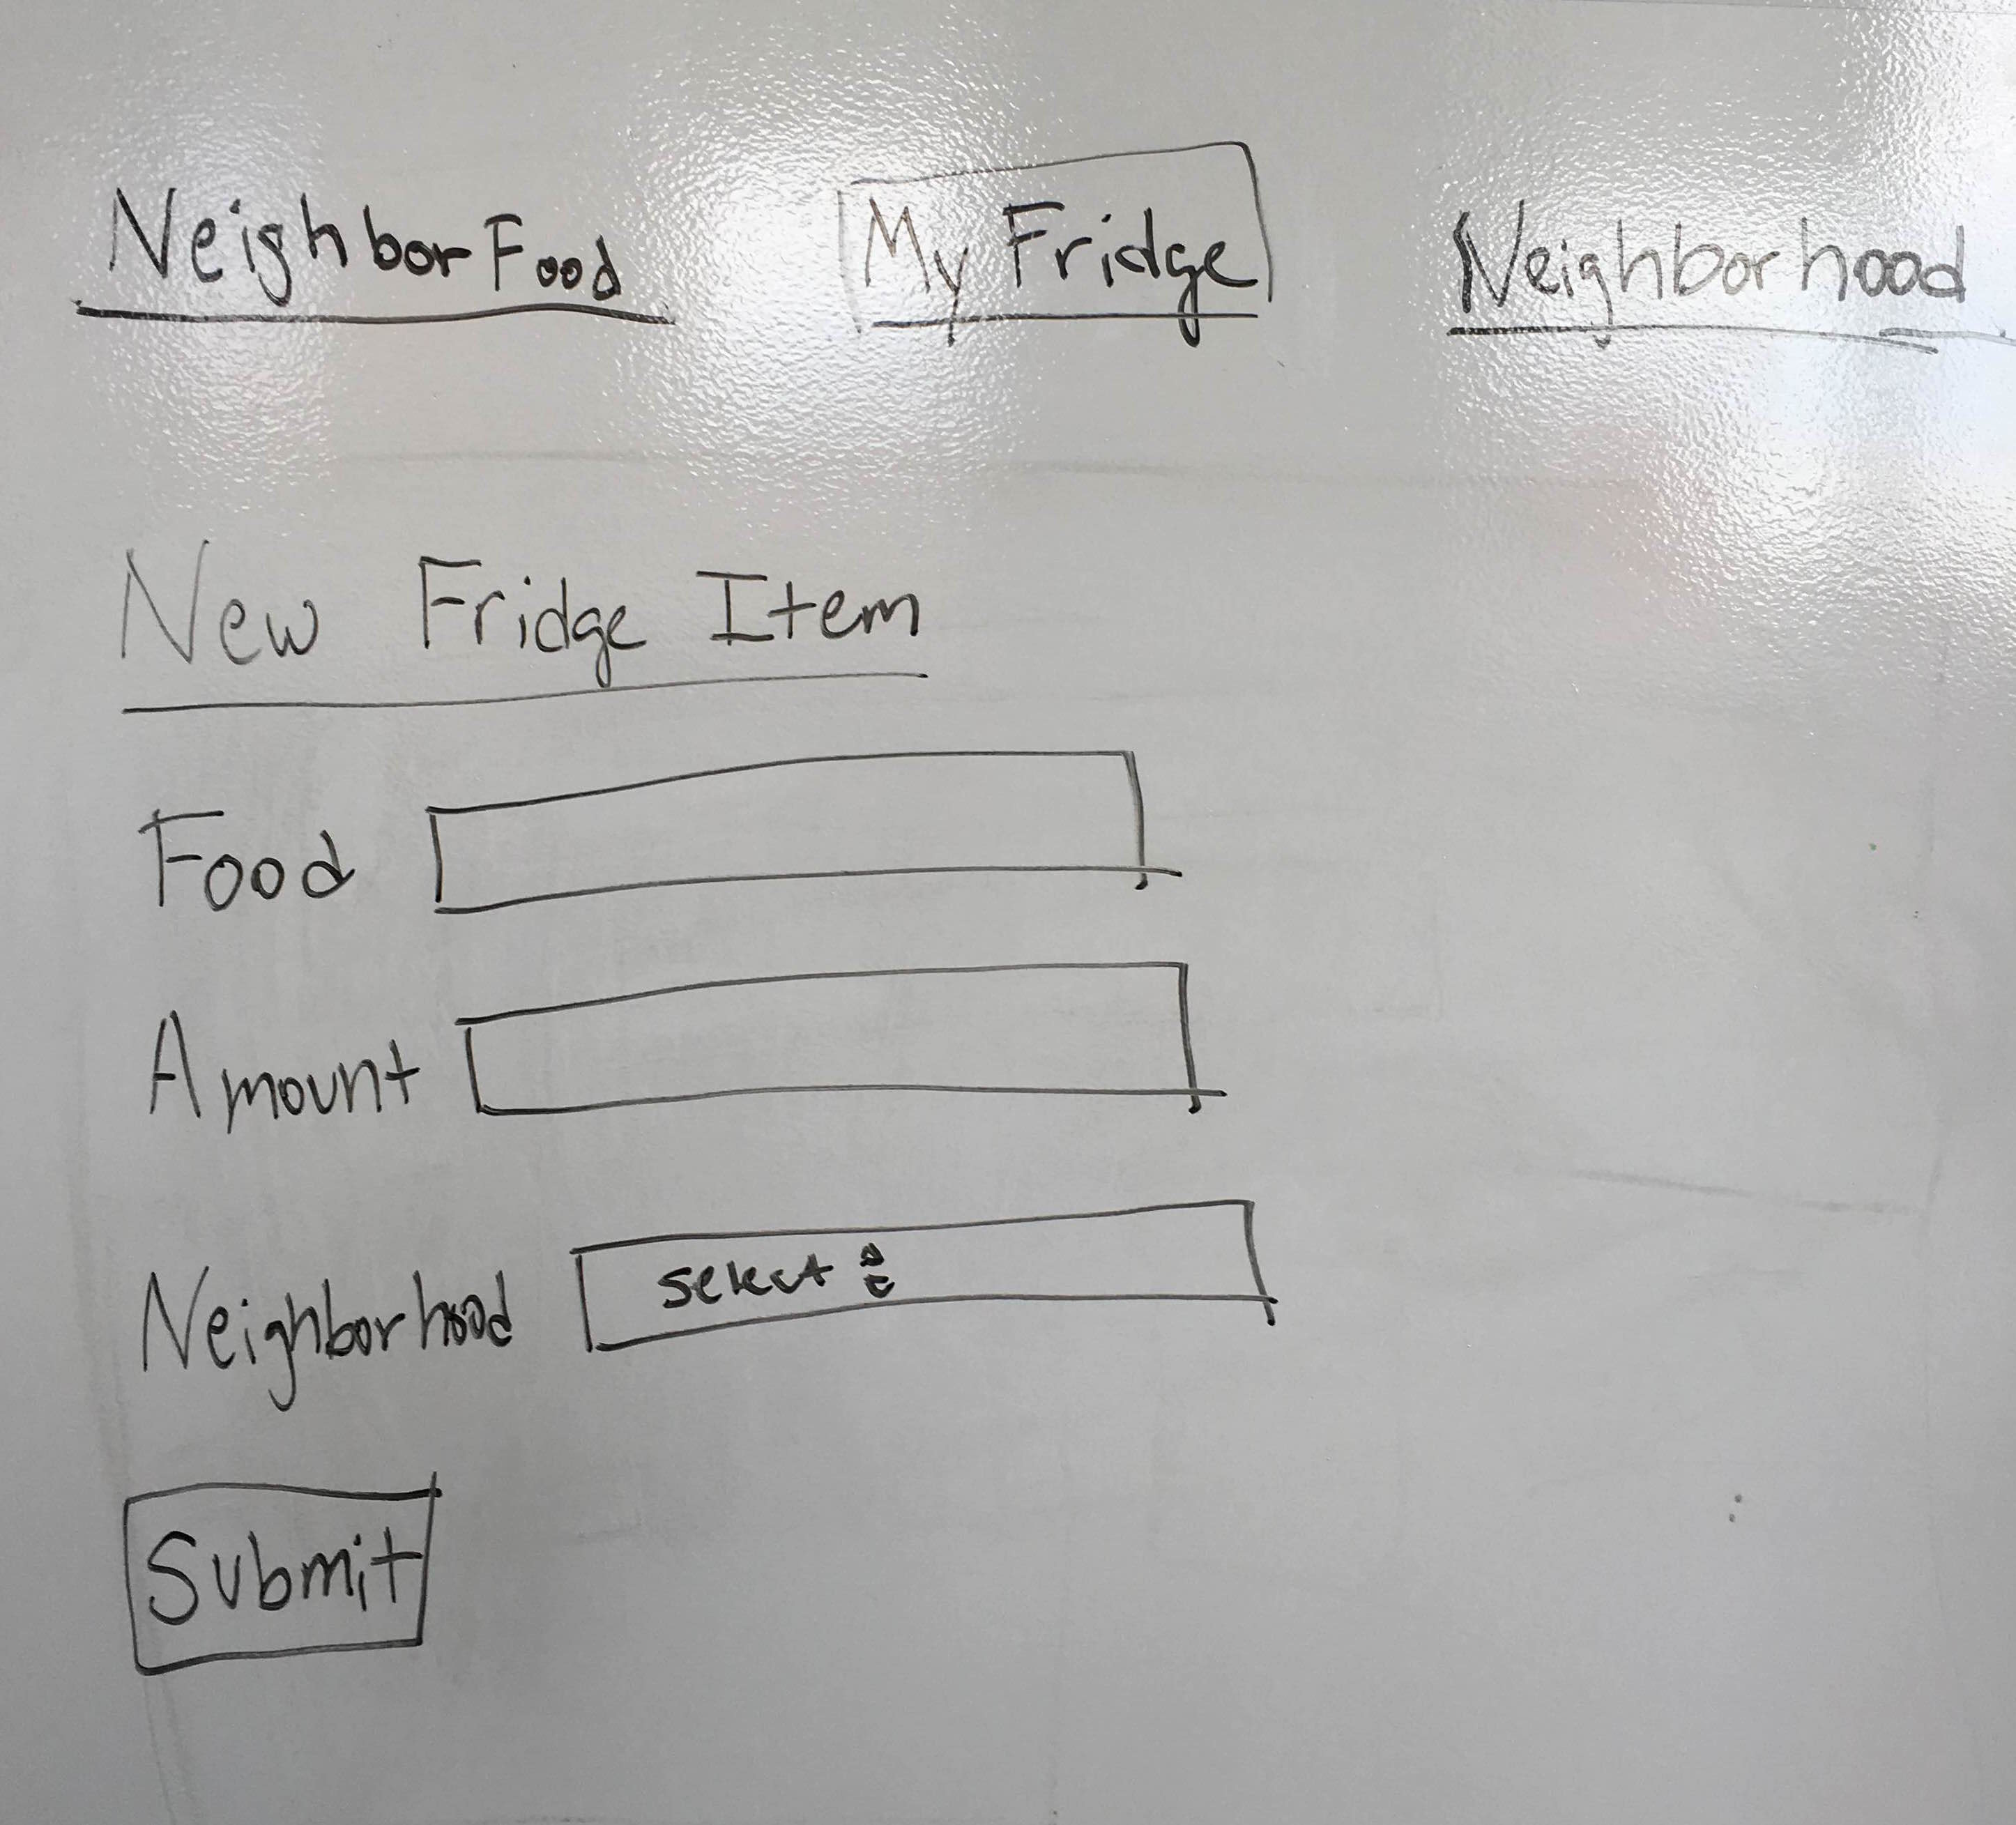 NeighborFood My Fridge Neighborhood
New Fridge Item
Food
Amount
Neighborhood select
Submit